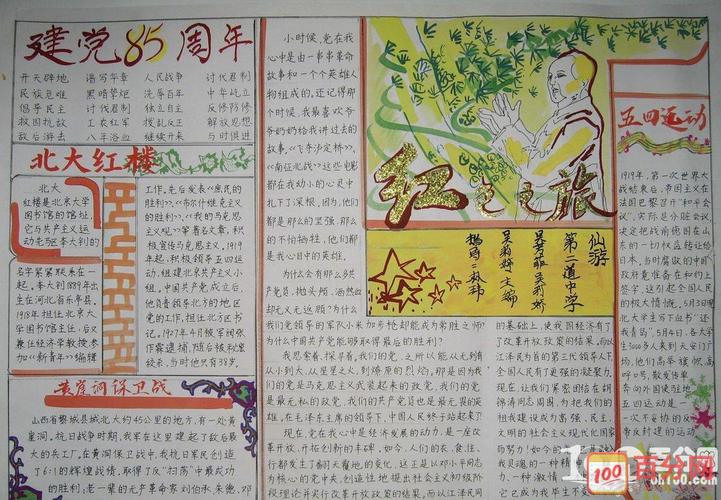 建党85周年
开天辟地 谱写华章 人民战争 讨伐君制
民族危难 黑暗势焰 洗辱百年 中华屹立
倡导民主 讨伐君制 独立自主 反修防修
救国抗敌 工农红军 拨乱反正 解放思想
敌后游击 八年浴血 继续开来 与时俱进
北大红楼
北大
红楼是北京大学
图书馆的馆址,
它与共产主义运
动先驱李大钊的
名字紧紧联系在一
起。李大钊1889年出
生在河北省乐亭县。
1918年担任北京大
学图书馆主任,后又
兼任经济学教授,参
加《新青年》编辑
工作,先后发表《庶民的
胜利》、《布尔什维克主义
的胜利》、《我的马克思主
义观》等著名文章,积
极宣传马克思主义,1919
年起,积极领导五四运
动,组建北京共产主义小
组,中国共产党成立后,
他负责领导北方的地区
党的工作,担任北方区书
记。1927年4月被军阀张
作霖逮捕,随后被秘密
绞杀,与时他只有38岁。
黄崖洞保卫战
山西省黎城县城北大约45公里的地方,有一处黄
崖洞。抗日战争时期,我军在这里建起了敌后最
大的兵工厂。在黄洞保卫战中,我抗日军民创造
了6:1的辉煌战绩,取得了反“扫荡”中最成功
的胜利;老一辈的无产革命家刘伯承、朱德、邓
小时候,党在我
心中是由一串串革命
故事和一个个英雄人
物组成的,还记得那
个时候,我最喜欢爷
爷奶奶给我讲过去的
故事,《飞夺泸定桥》、
《南征北战》这些电影
都在我幼小的心灵中
扎下了深根,因为,他们
都是那么的坚强,那么
的不怕牺牲,他们都是
我心目中的英雄。
为什么会有那么多共
产党员,抛头颅,洒热血
却无义无返顾?为什么
我们党领导的军队小米加步枪却能成为常胜之师?
为什么中国共产党能够取得最后的胜利?
我思索着,探寻着,我们的党,之所以能从无到有
从小到大,从星星之火,到燎原的烈焰,那是因为我
们的党是马克思主义武装起来的政党,我们的党
是最无私的政党,我们的共产党员也是最无畏的英
雄,在毛泽东主席的领导下,中国人民终于站起来了!
现在,党在我心中是经济发展的动力,是一座改
革开放,开拓创新的丰碑。如今,人们的衣、食、住、
行都发生了翻天覆地的变化,这正是以邓小平同志为
核心的党中央,创造性地提出社会主义初级阶
段理论并实行改革开放政策的结果。而以江泽民同
红色之旅
仙游
第二道中学
吴芳菲 吴莉娇
吴莉婷 主编
的基础上,使我国经济有了
了改革开放政策的结果。而以
江泽民为首的第三代领导下,全
国人民有了更强的凝聚力。
现在,让我们紧密团结在胡
锦涛同志周围,为把我们的
祖国建设成为富强、民主、
文明的社会主义现代化国家
而努力!如今的
我灵魂的一种精
力,一种激情
它已成为我毕生
五四运动
1919年,第一次世界大
战结束后,帝国主义在
法国巴黎召开“和平会
议”,实际是分赃会议,
决定把战前德国在山东
的一切权益转让给
日本,当时腐败的中国
政府竟准备在和约上
签字,这引起全国人民
的极大愤慨。5月3日晚
北大学生写下血书“还
我青岛”,5月4日,各大学
生3000多人来到天安门广
场,他们高举旗帜,高
呼口号,散发传单
奔向外国使驻地
五四运动是
一次不妥协的反
帝反封建的运动
100
百分网